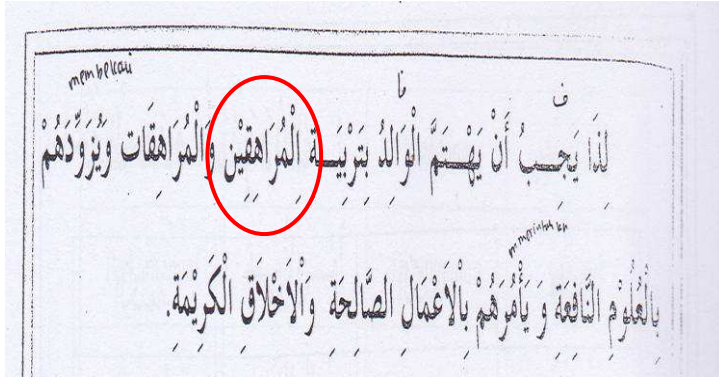 ف فا membekali
لِذَا يَجِبُ أَنْ يَهْتَمَّ الْوَالِدُ بِتَرْبِيَةِ الْمُرَاهِقِيْن وَالْمُرَاهِقَات وَيُزَوِّدَهُمْ
memerintahkan
بِالْعُلُوْمِ النَّافِعَةِ وَ يَأْمُرَهُمْ بِاْلاَعْمَالِ الصَّالِحَةِ وَاْلاَخْلاَقِ الْكَرِيْمَةِ.